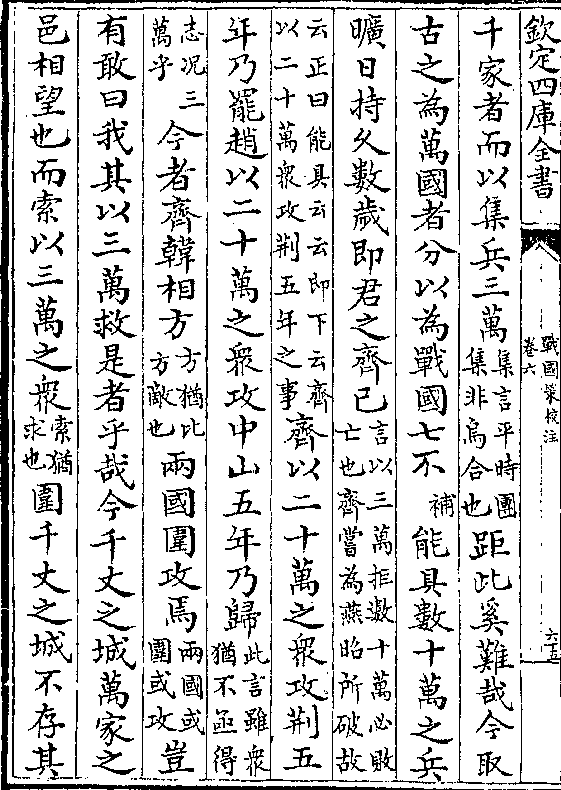 欽定四庫全書
戰國策校注
卷六
六五
千家者而以集兵三萬集言平時團集非烏合也距此奚難哉今取
古之為萬國者分以為戰國七不補能具數十萬之兵
曠日持久數歲即君之齊已言以三萬拒數十萬必敗亡也齊嘗為燕昭所破故
云正曰能具云云即下云齊以二十萬衆攻荆五年之事齊以二十萬之衆攻荆五
年乃罷趙以二十萬之衆攻中山五年乃歸此言雖衆猶不亟得
志况三萬乎今者齊韓相方方猶比方敵也兩國圍攻焉兩國或圍或攻豈
有敢曰我其以三萬救是者乎哉今千丈之城萬家之
邑相望也而索以三萬之衆索猶求也圍千丈之城不存其